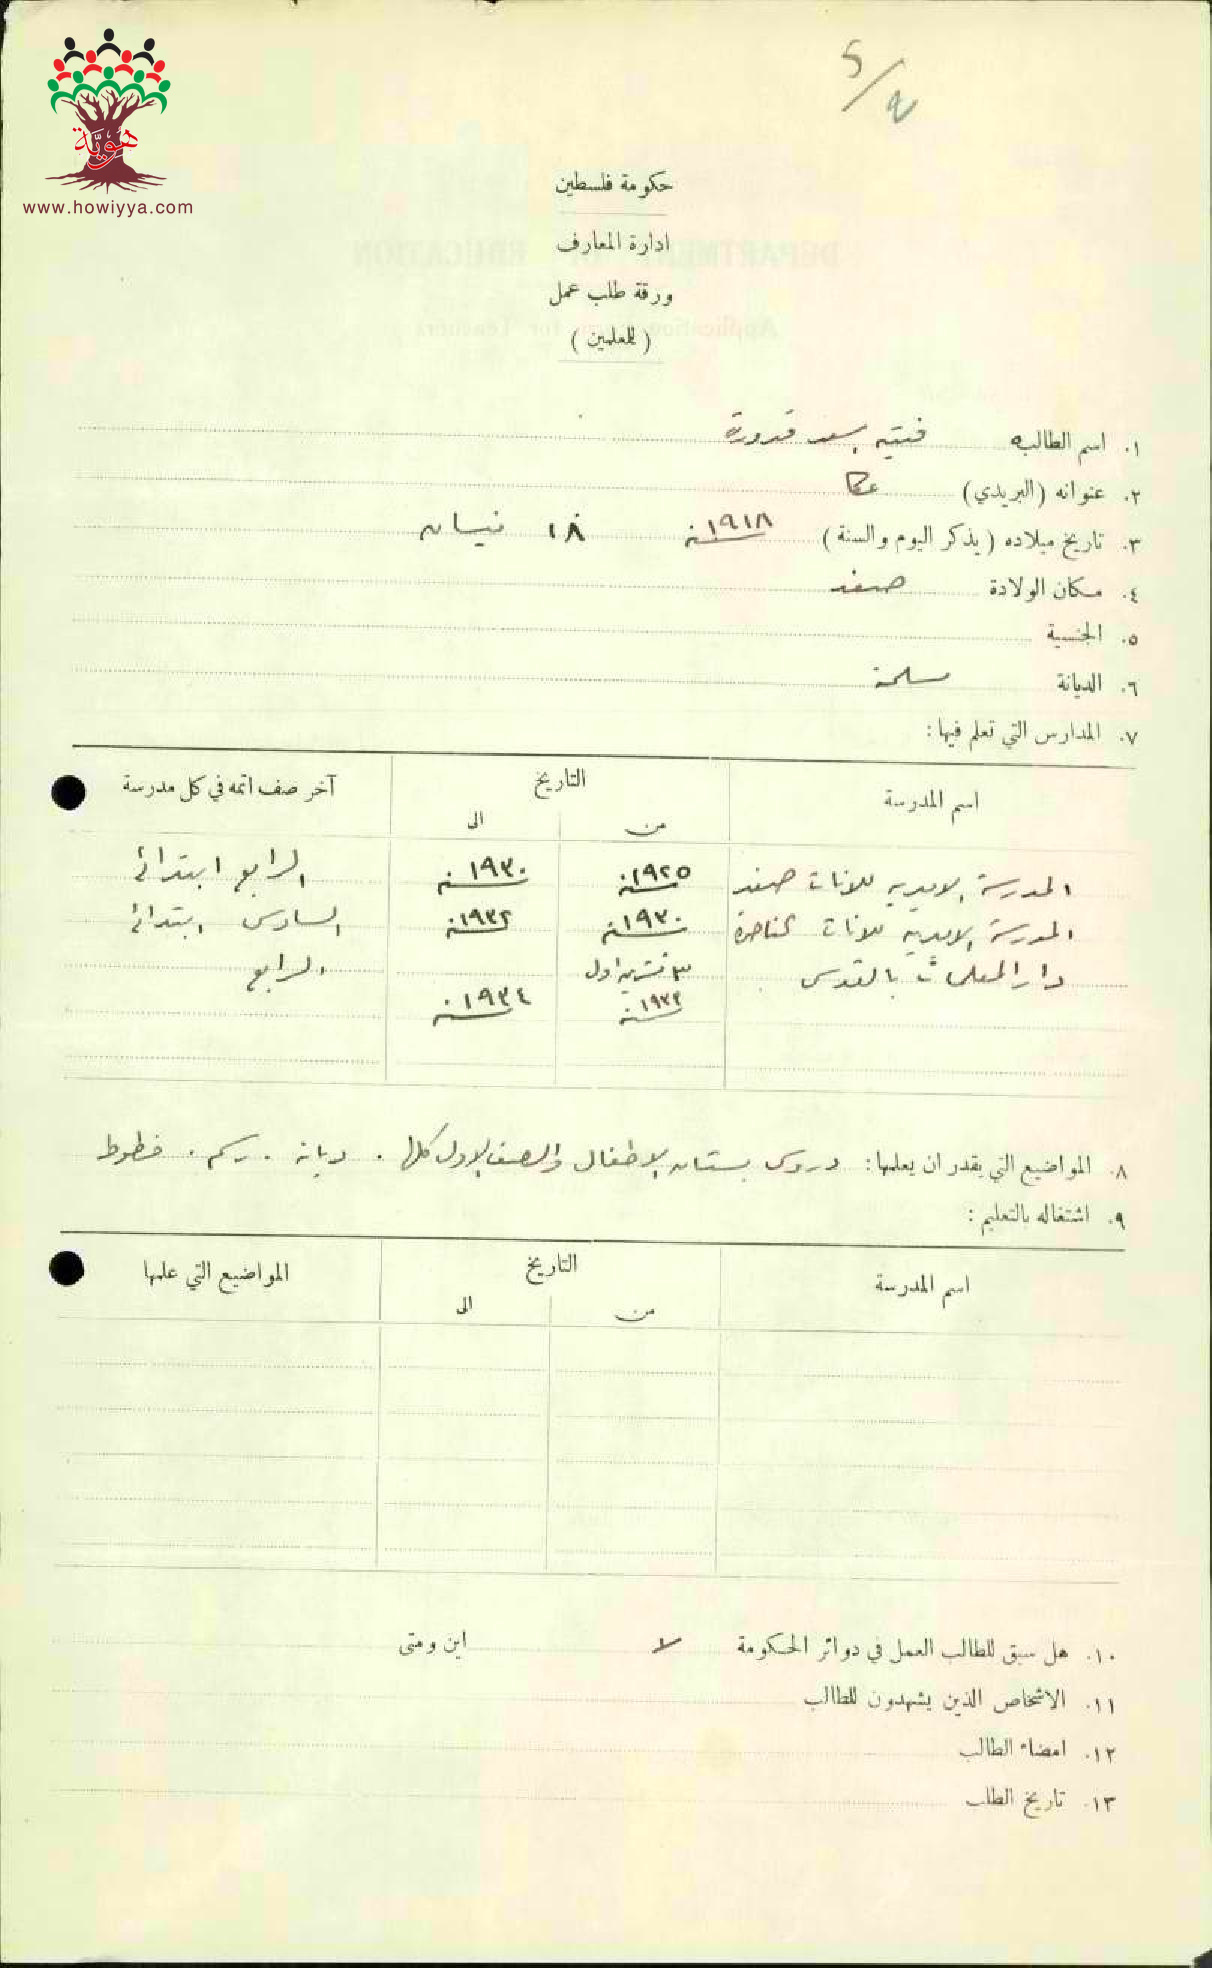 5/2
هويّة
www.howiyya.com
حكومة فلسطين
ادارة المعارف
ورقة طلب عمل
( للمعلمين )
١. اسم الطالبه سعد قدورة
٢. عنوانه (البريدي) عكا
٣. تاريخ ميلاده ( يذكر اليوم والسنة ) سنة ١٩١٨ ١٨ نيسان
٤. مكان الولادة صفد
٥. الجنسية
٦. الديانة مسلمة
٧. المدارس التي تعلم فيها :
اسم المدرسة التاريخ آخر صف اتمه في كل مدرسة
من الى
المدرسة الاميرية للاناث صفد سنة ١٩٢٥ سنة ١٩٣٠ الرابع ابتدائي
المدرسة الاميرية للاناث الناصرة سنة ١٩٣٠ سنة ١٩٣٢ السادس ابتدائي
دار المعلمات بالقدس ٣ تشرين اول الرابع
سنة ١٩٣٢ سنة ١٩٣٤
٨. المواضيع التي يقدر ان يعلمها : دروس بستان الاطفال والصف الاول كلها . ديانة . رسم . خطوط
٩. اشتغاله بالتعليم :
اسم المدرسة التاريخ المواضيع التي علمها
من الى
١٠. هل سبق للطالب العمل في دوائر الحكومة لا اين ومتى
١١. الاشخاص الذين يشهدون للطالب
١٢. امضاء الطالب
١٣. تاريخ الطلب